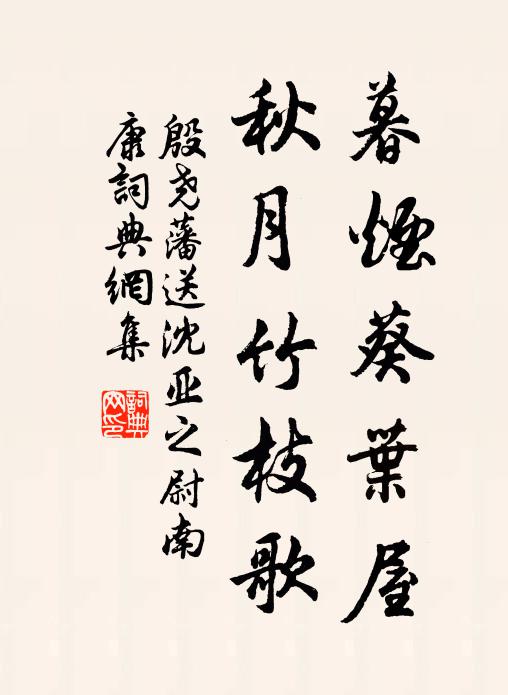 暮煙葵葉屋
秋月竹枝歌
殷尧藩送沈亚之尉南
康詞典網集
詞典
网印